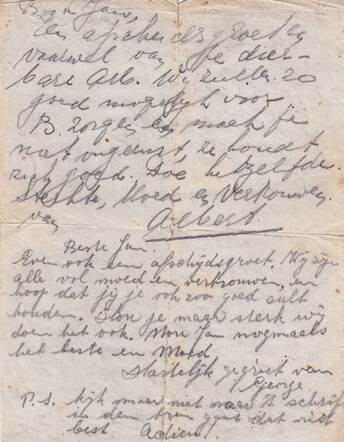 Beste Jan,
Een afscheidsgroet en
vaarwel van je dier-
bare Alb. Wij zullen zo
goed mogelijk voor
B. zorgen en maak je
niet ongerust, ze houdt
zich goed. Doe hetzelfde.
Sterkte, Moed en Vertrouwen.
van
Albert
Beste Jan
Even ook een afscheidsgroet. Wij zijn
alle vol moed en vertrouwen, en
hoop dat jij je ook zoo goed zult
houden. Hou je maar sterk wij
doen het ook. Nou Jan nogmaals
het beste en Moed
Hartelijk gegroet van
George
P.S. kijk maar niet naar 't schrift
in den trein gaat dat niet
best Adieu